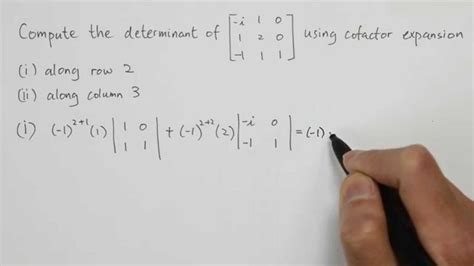 Compute the determinant of [-i 1 0; 1 2 0; -1 1 1] using cofactor expansion
(i) along row 2
(ii) along column 3
(i) (-1)^{2+1}(1) |1 0; 1 1| + (-1)^{2+2}(2) |-i 0; -1 1| = (-1)